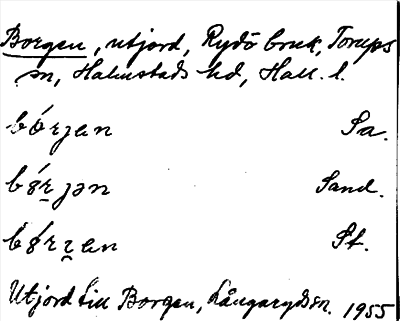 Borgen, utjord, Rydö bruk, Torups
sn, Halmstads hd, Hall. l.
bórjan Sa.
bórjən Sand.
bórɀan St.
Utjord till Borgen, Långarydssn. 1955